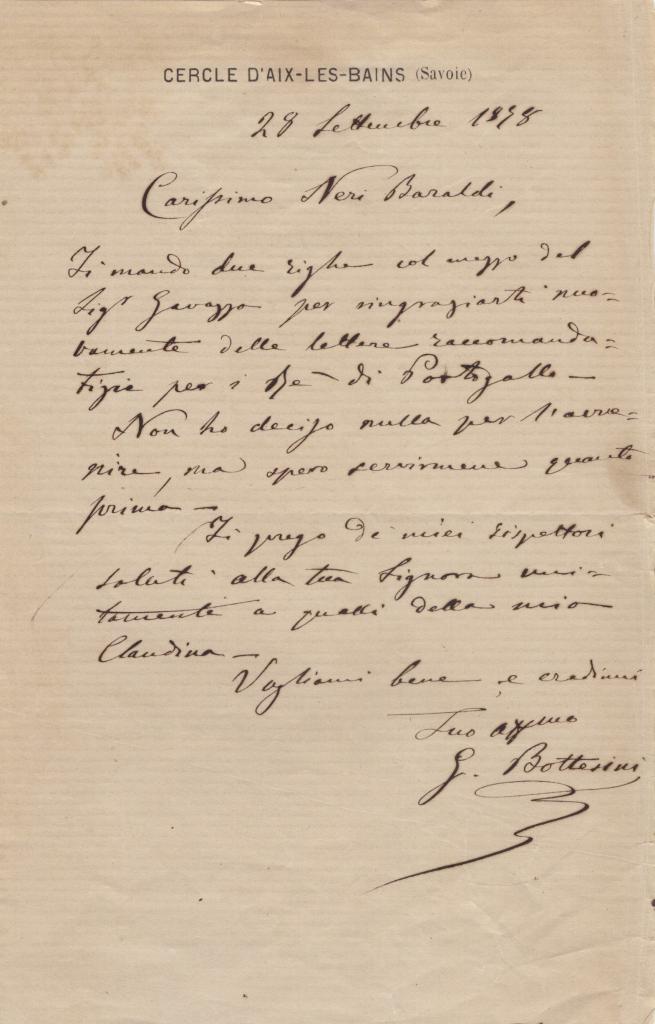 CERCLE D'AIX-LES-BAINS (Savoie)
28 Settembre 1878
Carissimo Neri Baraldi,
Ti mando due righe col mezzo del
Sigr Gavazzo per ringraziarti nuo=
vamente delle lettere raccomanda=
tizie per i Re di Portogallo —
Non ho deciso nulla per l'avve=
nire, ma spero servirmene quanto
prima —
Ti prego de' miei rispettosi
saluti alla tua Signora uni=
tamente a quelli della mia
Claudina —
Vogliami bene e credimi
Tuo affmo
G. Bottesini